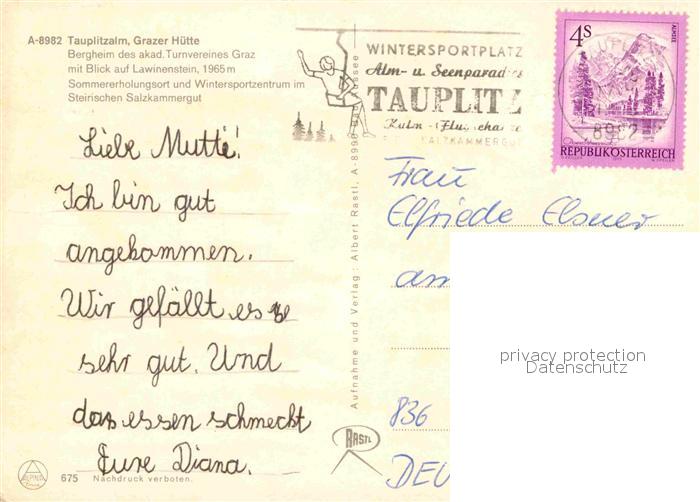 A-8982 Tauplitzalm, Grazer Hütte
Bergheim des akad. Turnvereines Graz
mit Blick auf Lawinenstein, 1965 m
Sommererholungsort und Wintersportzentrum im
Steirischen Salzkammergut
WINTERSPORTPLATZ
Alm- u. Seenparadies
TAUPLITZ
Kulm - Flugschanze
SALZKAMMERGUT
4S
ALMSEE
8982
REPUBLIK ÖSTERREICH
Liebe Mutti!
Ich bin gut
angekommen.
Wir gefällt es
sehr gut. Und
das essen schmeckt
Eure Diana.
Aufnahme und Verlag: Albert Rastl, A-8990 Bad Aussee
Frau
Elfriede Elsner
am
privacy protection
Datenschutz
836
DEU
RASTL
ALPINA
675 Nachdruck verboten.